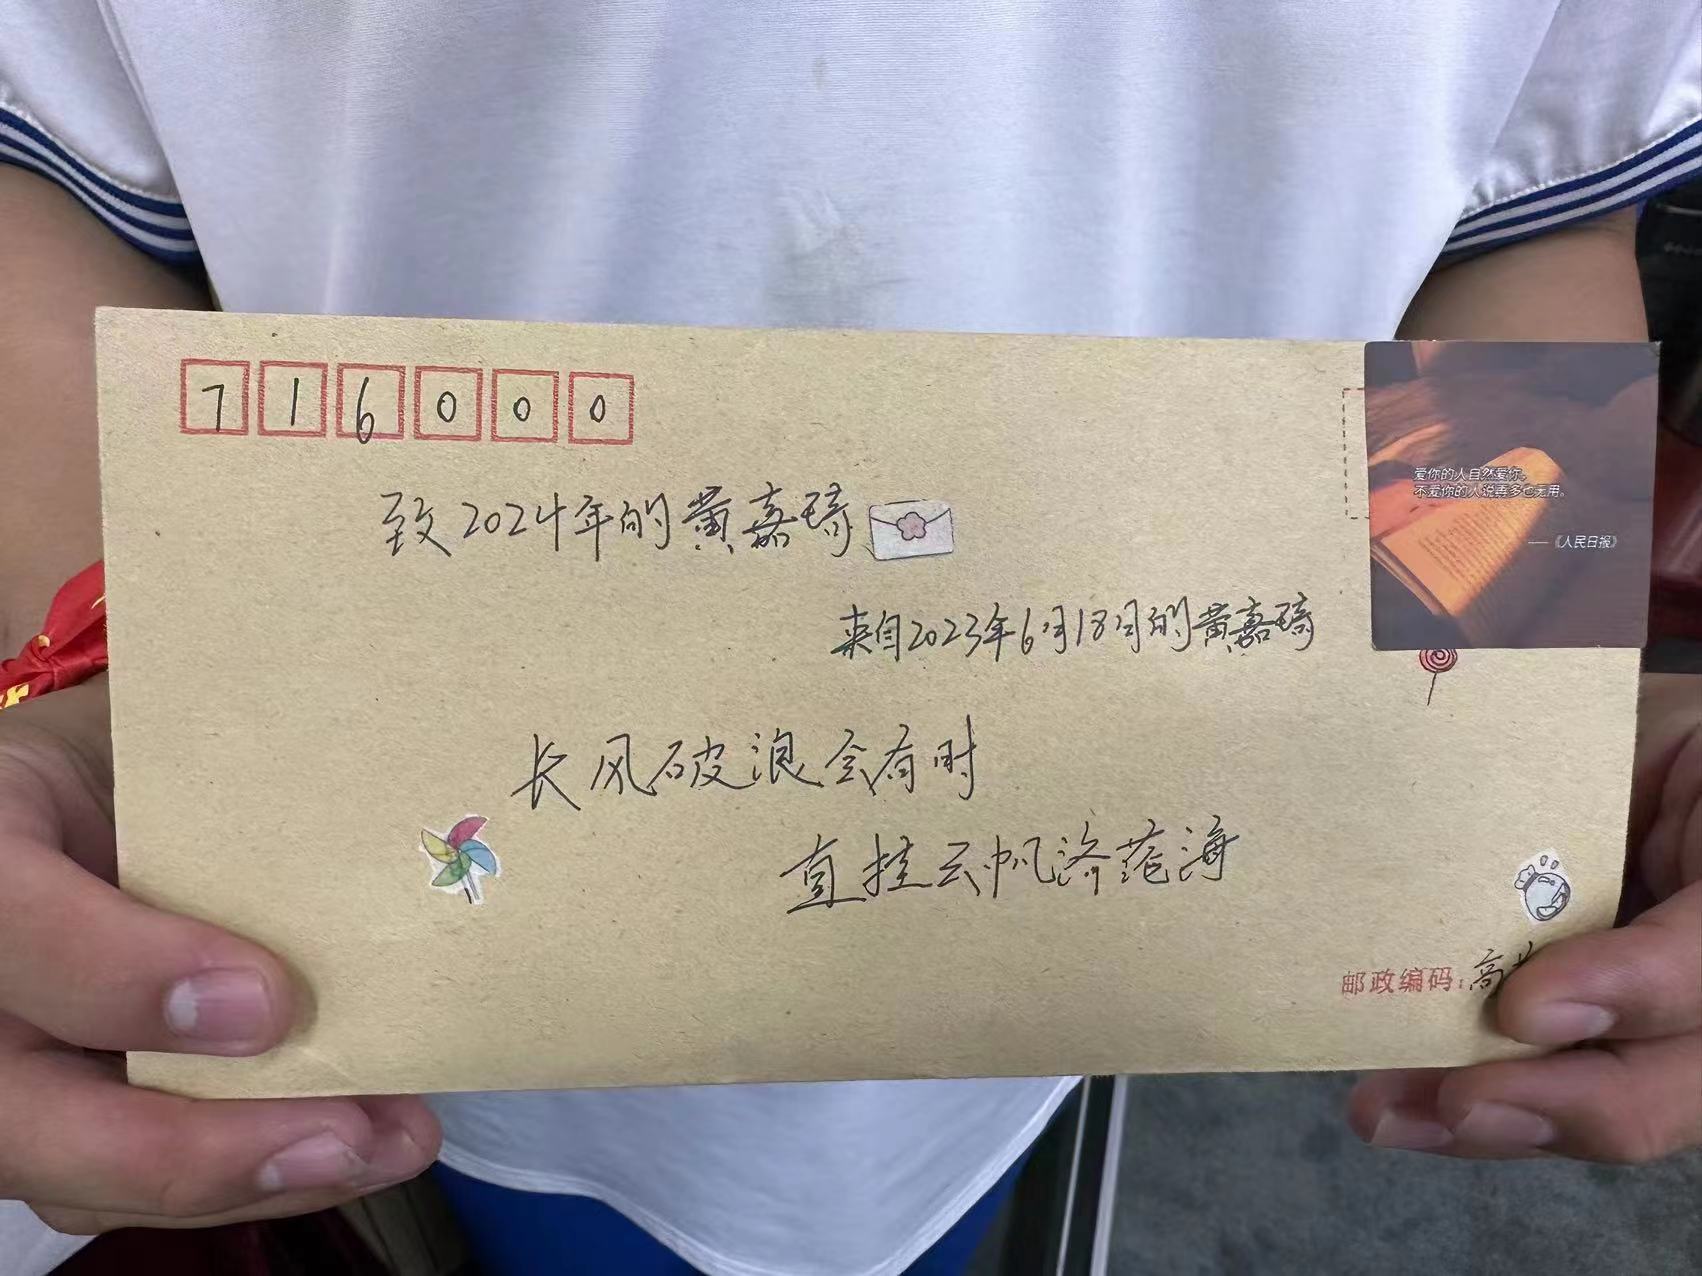 716000
致2024年的黄嘉琦
来自2023年6月18日的黄嘉琦
爱你的人自然爱你,
不爱你的人说再多也无用。
——《人民日报》
长风破浪会有时
直挂云帆济沧海
邮政编码：高